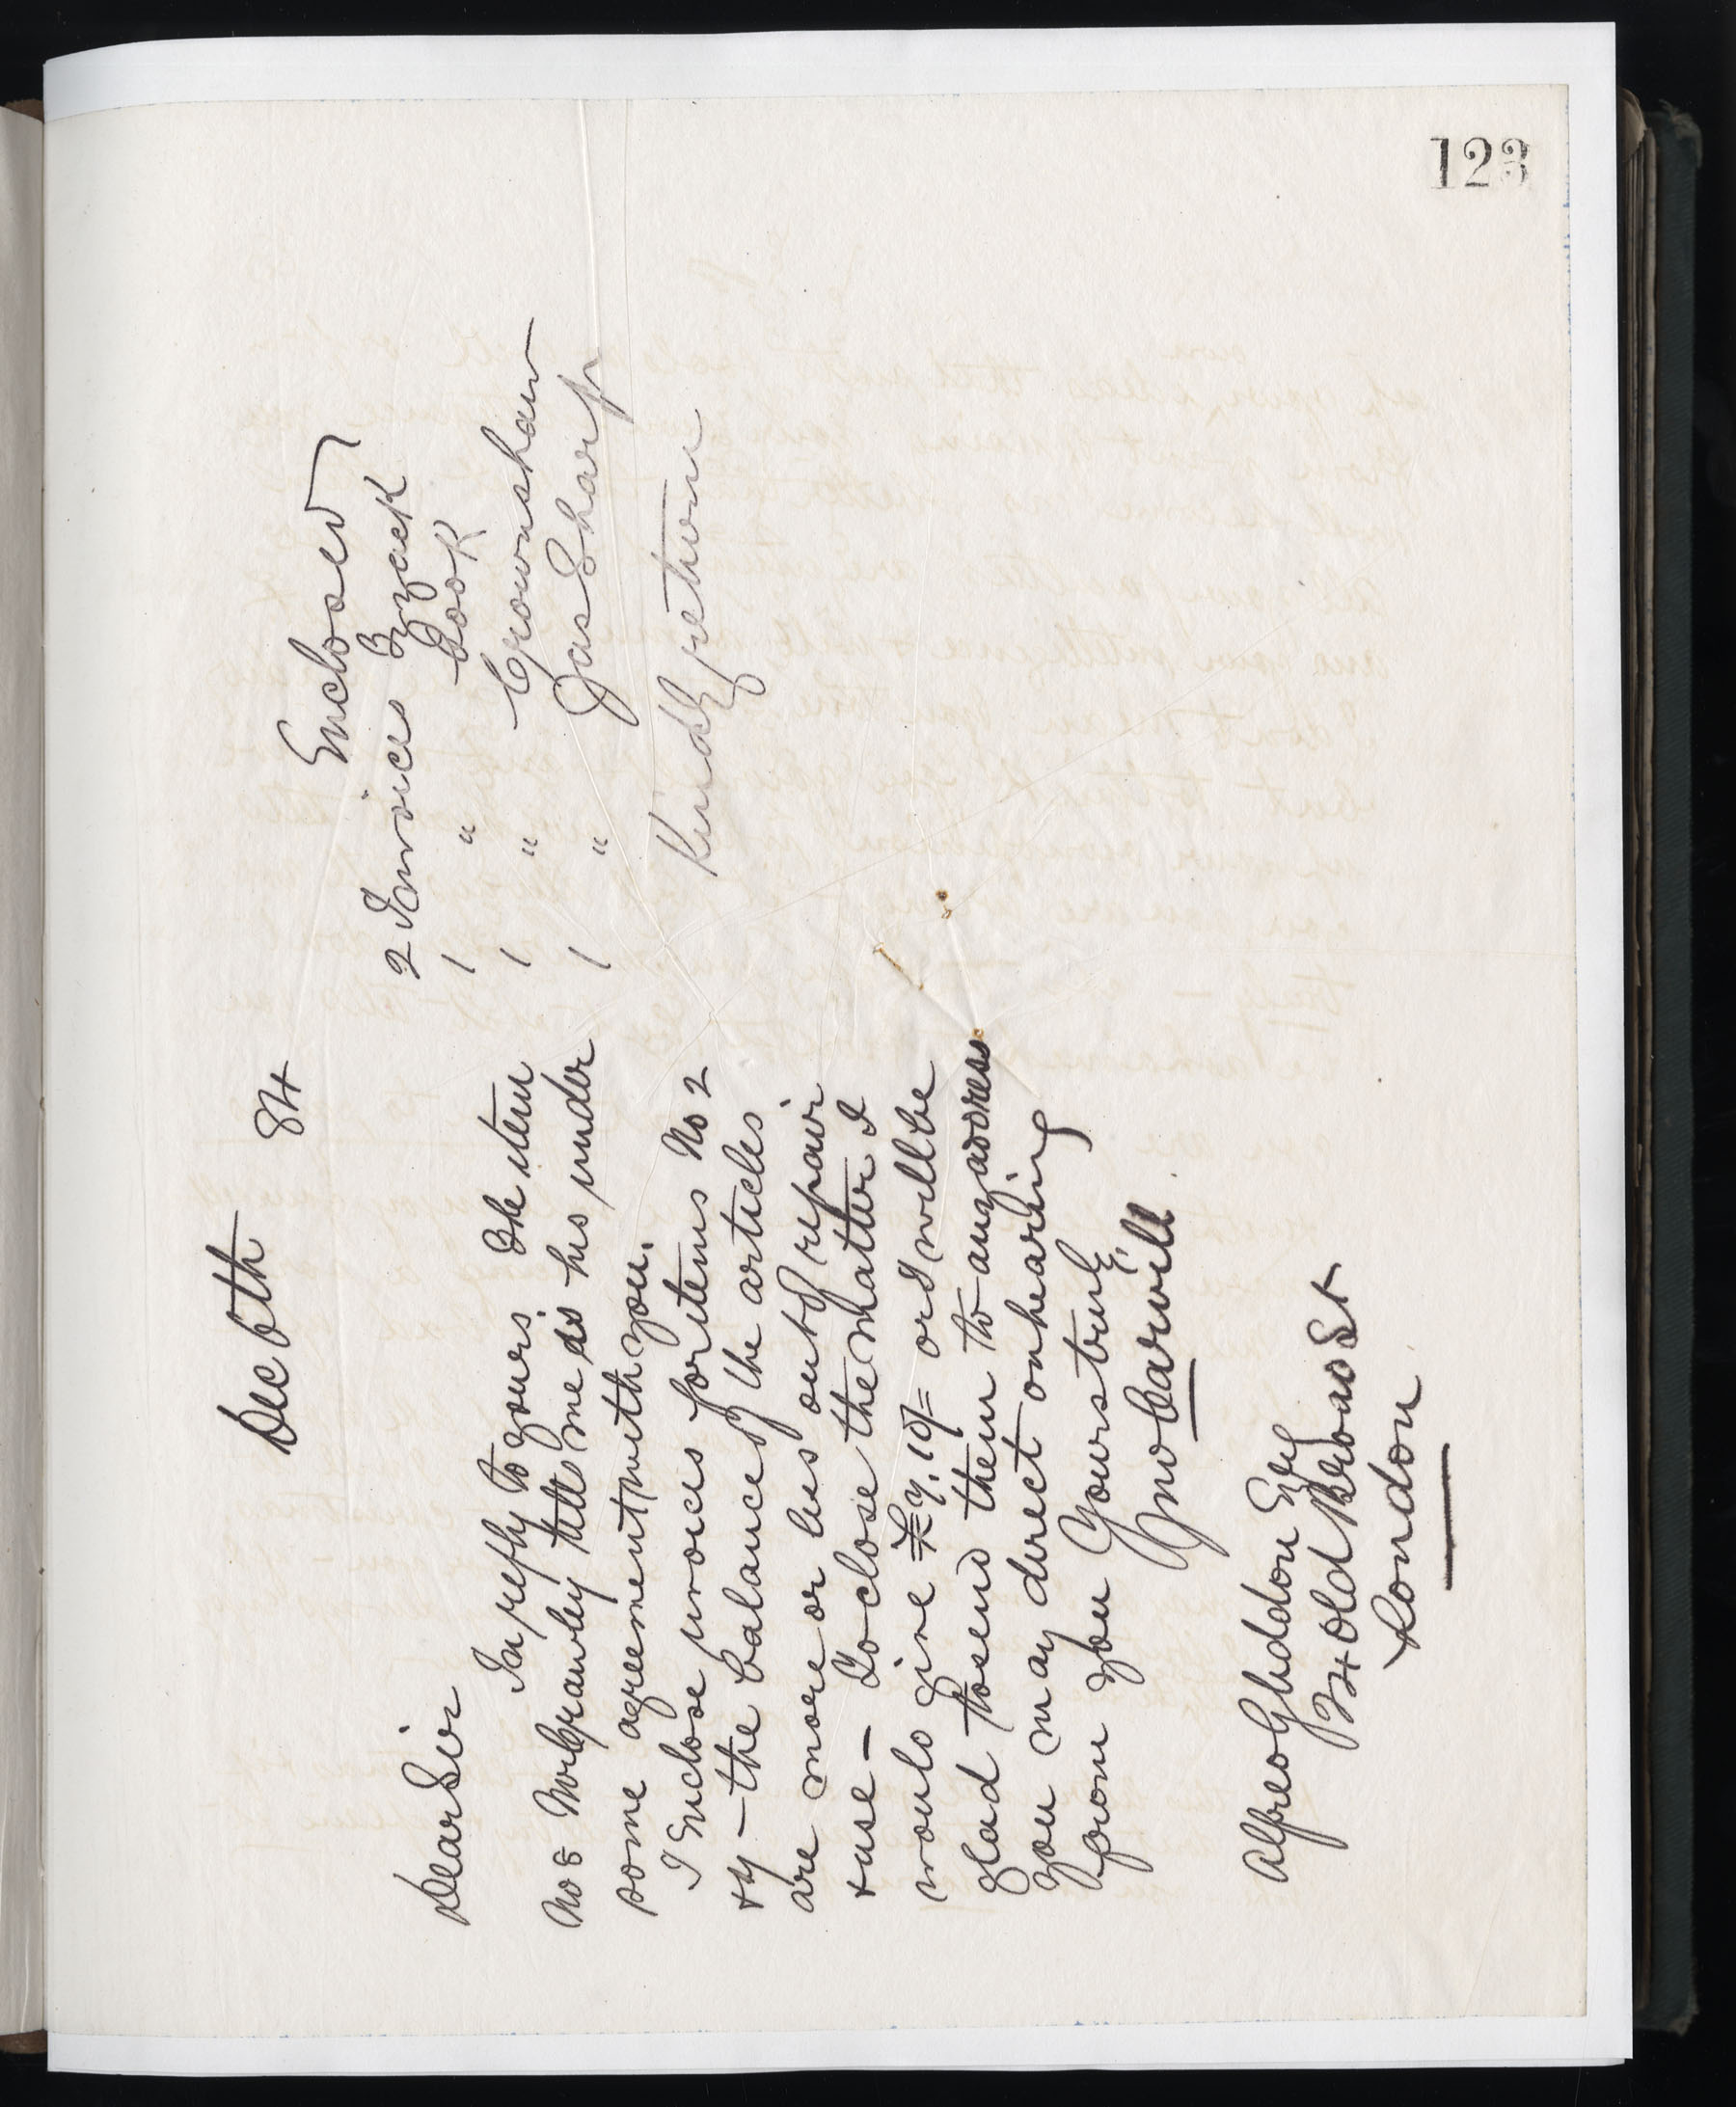 123
Dec 6th 84
Dear Sir
In reply to yours. The item
No 8 Mr Crawley tells me is his under
some agreement with you.
I Enclose invoices for items No 2
+ 4 – the balance of the articles
are more or less out of repair
+ use – To close the matter I
would give £7.10/= or I will be
glad to send them to any address
you may direct on hearing
from you Yours truly
Jno Carwill
Alfred Gliddon Esq
34 Old Broad St
London
Enclosed
2 Invoices Izack
1 " Cook
1 " Crownshaw
1 " Jas Sharp
Kindly return